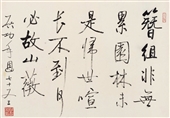 簪組非無
累園林未
是歸世喧
長不到何
必故山薇
啟功